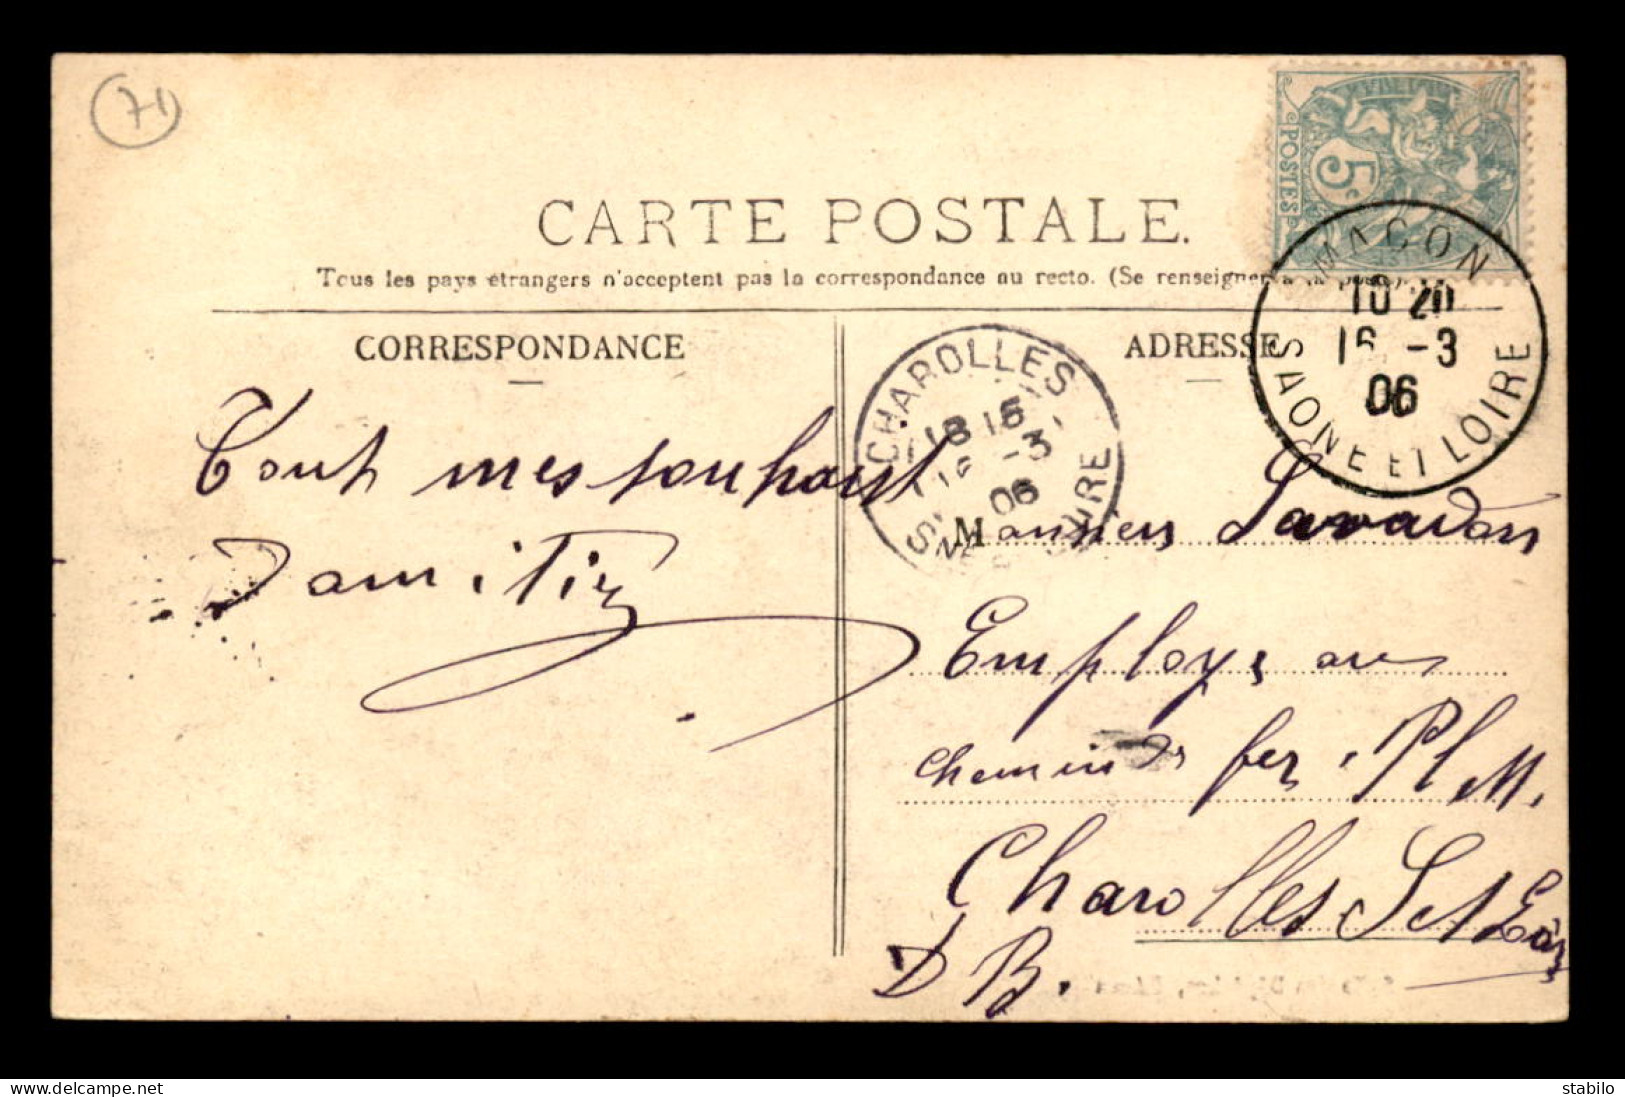 71
CARTE POSTALE.
Tous les pays étrangers n'acceptent pas la correspondance au recto. (Se renseigner à la poste).
POSTES
5c
MACON
10 20
16 -3
06
SAONE ET LOIRE
CORRESPONDANCE
ADRESSE
CHAROLLES
18 15
16 -3
06
SNE ET LOIRE
Tout mes souhait
Monsieur
Employe au
chemin de fer Pl M.
Charolles S et Loir
D B.
stabilo
delcampe.net